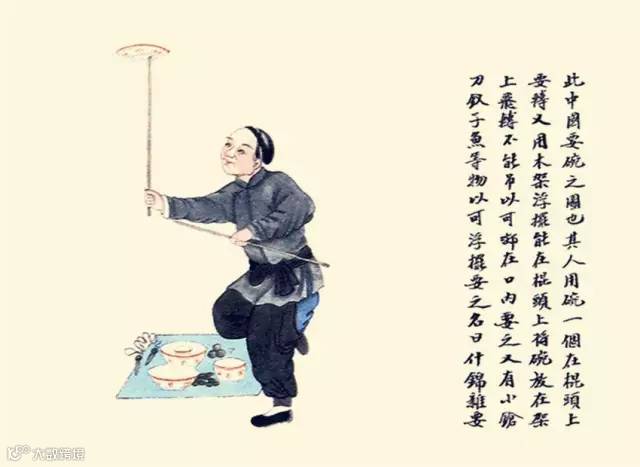 此中國耍碗之圖也其人用碗一個在棍頭上
耍轉又用木架浮擺能在棍頭上將碗放在架
上飛轉不能吊以可啣在口內耍之又有小鎗
刀釵子魚等物以可浮擺耍之名曰什錦雜耍
大数跨境